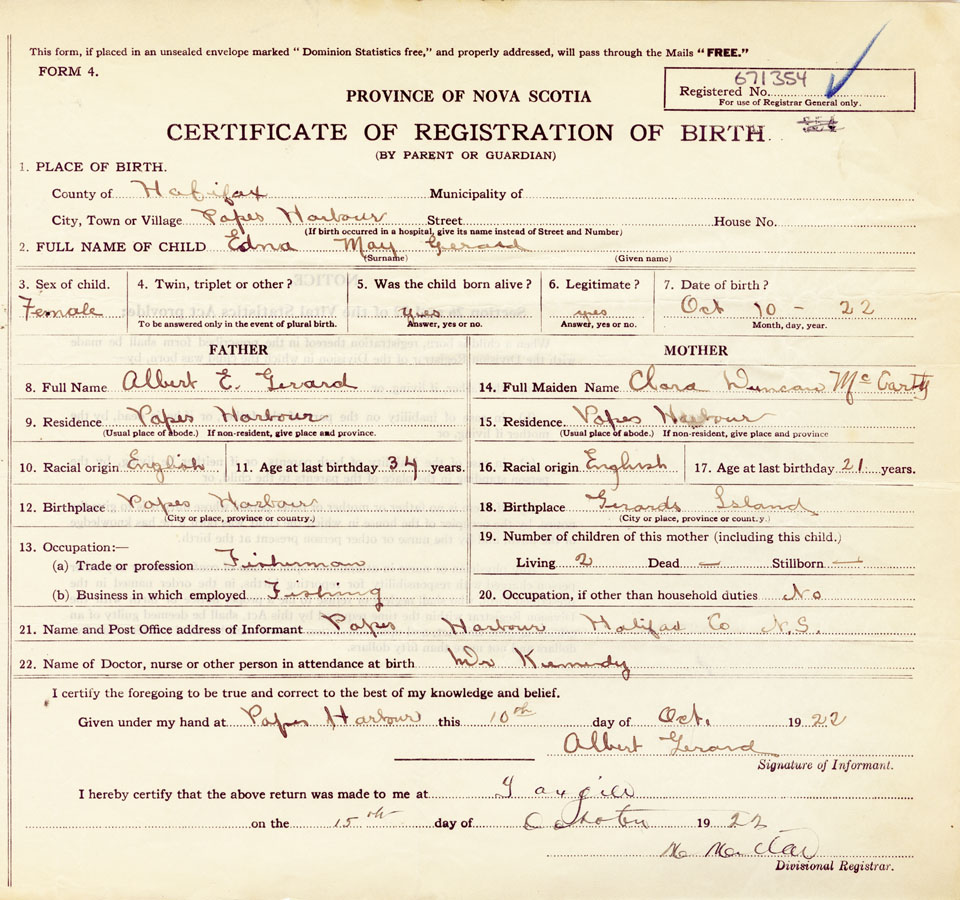 This form, if placed in an unsealed envelope marked “Dominion Statistics free,” and properly addressed, will pass through the Mails “FREE.”
FORM 4.
671354
Registered No.
For use of Registrar General only.
PROVINCE OF NOVA SCOTIA
CERTIFICATE OF REGISTRATION OF BIRTH
(BY PARENT OR GUARDIAN)
1. PLACE OF BIRTH.
County of Halifax Municipality of
City, Town or Village Popes Harbour Street House No.
(If birth occurred in a hospital, give its name instead of Street and Number)
2. FULL NAME OF CHILD Edna May Gerard
(Surname) (Given name)
3. Sex of child. 4. Twin, triplet or other? 5. Was the child born alive? 6. Legitimate? 7. Date of birth?
Female yes yes Oct 10 - 22
To be answered only in the event of plural birth. Answer, yes or no. Answer, yes or no. Month, day, year.
FATHER
8. Full Name Albert E. Gerard
9. Residence Popes Harbour
(Usual place of abode.) If non-resident, give place and province.
10. Racial origin English 11. Age at last birthday 34 years.
12. Birthplace Popes Harbour
(City or place, province or country.)
13. Occupation:—
(a) Trade or profession Fisherman
(b) Business in which employed Fishing
MOTHER
14. Full Maiden Name Clara Duncan McCarty
15. Residence. Popes Harbour
(Usual place of abode.) If non-resident, give place and province
16. Racial origin English 17. Age at last birthday 21 years.
18. Birthplace Gerards Island
(City or place, province or country.)
19. Number of children of this mother (including this child.)
Living 2 Dead — Stillborn —
20. Occupation, if other than household duties No
21. Name and Post Office address of Informant Popes Harbour Halifax Co N.S.
22. Name of Doctor, nurse or other person in attendance at birth Kennedy
I certify the foregoing to be true and correct to the best of my knowledge and belief.
Given under my hand at Popes Harbour this 10th day of Oct. 1922
Albert Gerard
Signature of Informant.
I hereby certify that the above return was made to me at Tangier
on the 15th day of October 1922
Divisional Registrar.